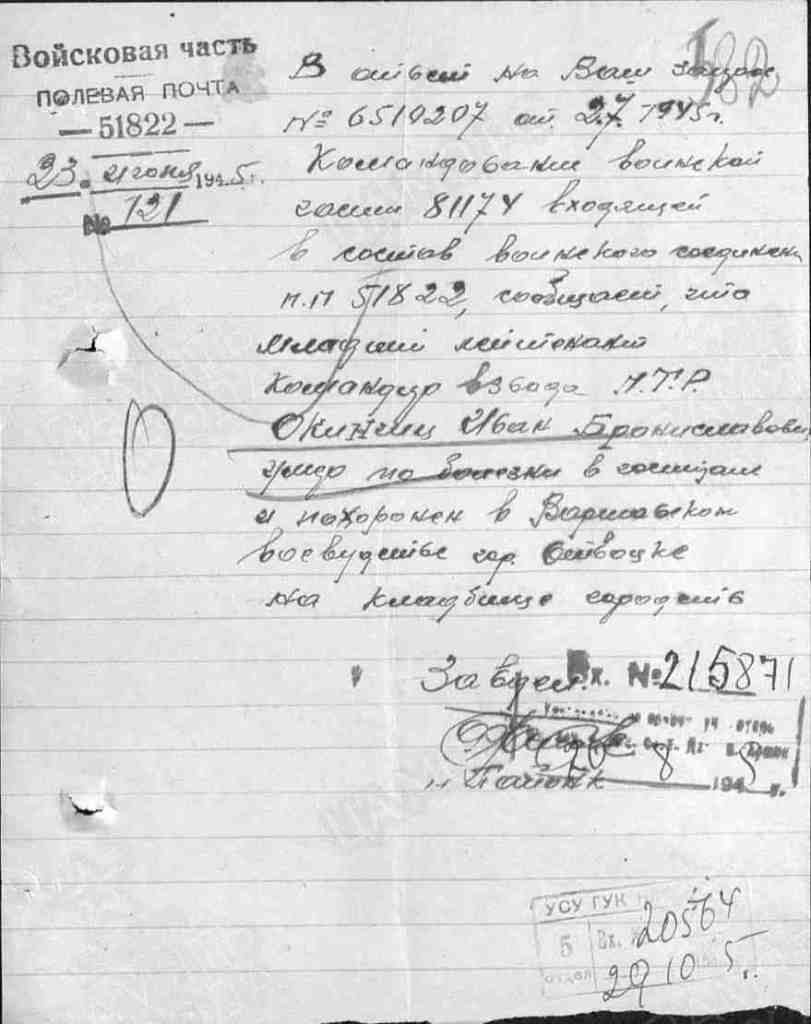 Войсковая часть
ПОЛЕВАЯ ПОЧТА
— 51822 —
23. июня 1945г.
№ 121
182
В ответ на Ваш запрос
№ 6510207 от 2.7. 1945г.
Командование воинской
части 81174 входящей
в состав воинского соединен
п.п 51822, сообщает, что
младший лейтенант
Командир взвода П.Т.Р.
Окинчиц Иван Брониславови
умер по болезни в госпитале
и похоронен в Варшавском
воевудстве гор. Отвоцке
на кладбище
За
Вх. № 215871
отдел
8 194 г.
УСУ ГУК
5 отдел
Вх. 20564
29 10 5 г.